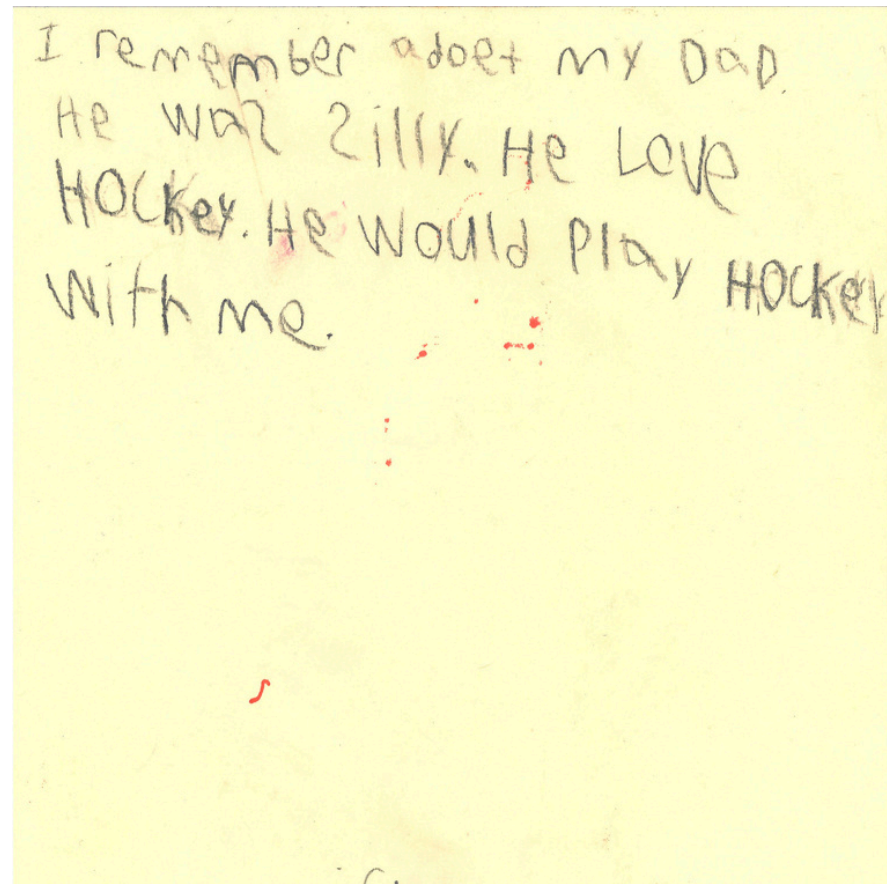 I remember adoet my DaD.
He was silly. He Love
HOCKey. He would Play HOCKey
with me.